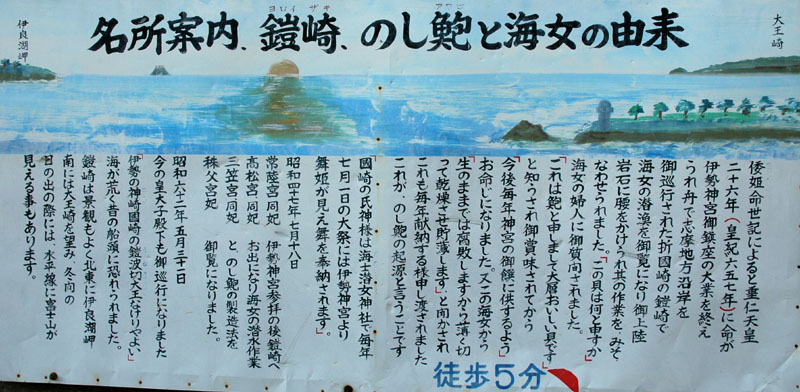 大王崎
ヨロイ ザキ
アワビ
名所案内、鎧崎、のし鮑と海女の由来
伊良湖岬
倭姫命世記によると垂仁天皇
二十六年(皇紀六五七年)に命が
伊勢神宮御鎮座の大業を終え
られ舟で志摩地方沿岸を
御巡行された折國崎の鎧崎で
海女の潜漁を御覧になり御上陸
岩石に腰をかけられ其の作業を、みそ
なわせられました。「この貝は何と申すか」
海女の婦人に御質問されました。
「これは鮑と申しまして大層おいしい貝です」
と知らされ御賞味されてから
「今後毎年神宮の御饌に供するよう」
お命しになりました。又この海女から
「生のままでは腐敗しますから薄く切
って乾燥させ貯藏します」と聞かされ
これも毎年献納する様申し渡されました
これが、のし鮑の起源と言うことです
國崎の氏神様は海士潜女神社で毎年
七月一日の大祭には伊勢神宮より
舞姫が見え舞を奉納されます。
昭和四十七年七月十八日
常陸宮、同妃 伊勢神宮参拝の後鎧崎へ
高松宮、同妃 お出になり海女の潜水作業
三笠宮、同妃 と、のし鮑の製造法を
秩父宮妃 御覧になりました。
昭和六十二年五月三十一日
今の皇太子殿下も御巡行になりました
「伊勢の神崎國崎の鎧波切大王なけりゃよい」
海が荒く昔の船頭に恐れられました。
鎧崎は景観もよく北東に伊良湖岬
南には大王崎を望み、冬向の
日の出の際には、水平線に富士山が
見える事もあります。
徒歩5分